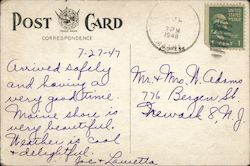 POST CARD
CORRESPONDENCE
7-27-47
Arrived safely
and having a
very good time.
Maine shore is
very beautiful.
Weather is cool
& delightful.
Joe & Lauretta
PM
194
1 CENT 1
Mr. & Mrs. W. Adams
776 Bergen St.
Newark 8, N.J.